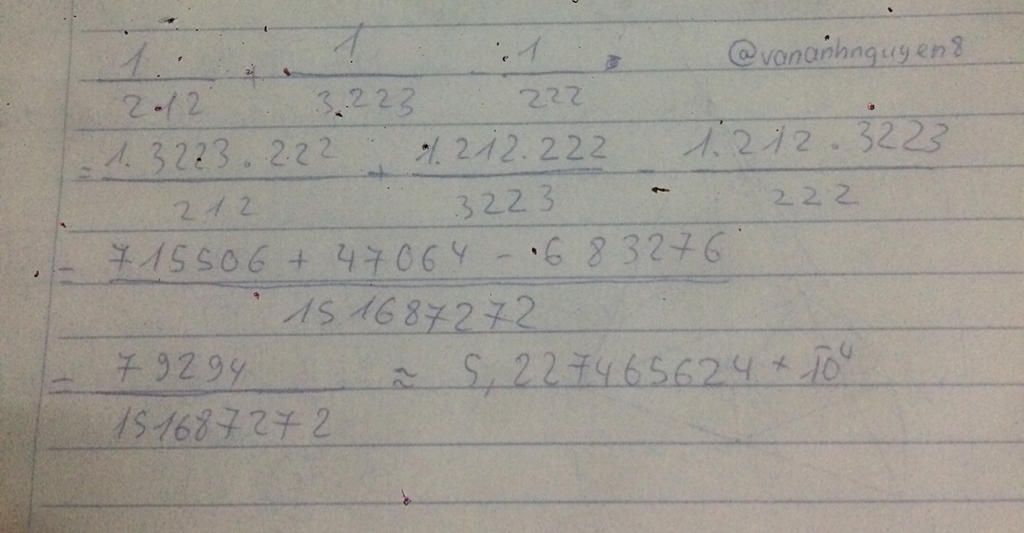 1/2.12 + 1/3.223 - 1/222 = @vananhnguyen8
= 1.3223.222/212 + 1.212.222/3223 - 1.212.3223/222
= 715506 + 47064 - 683276/151687272
= 79294/151687272 ≈ 5,227465624 * 10⁻⁴